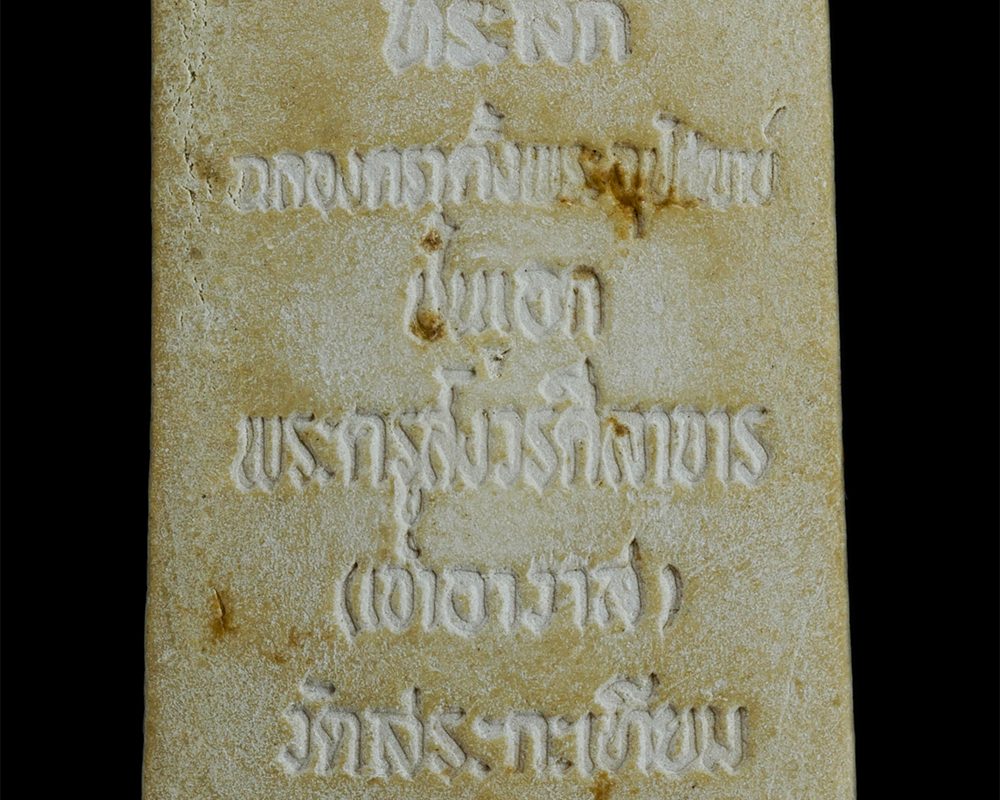 ที่ระลึก
ฉลองตราตั้งพระอุปัชฌาย์
ชั้นเอก
พระครูสังวรศีลาจาร
(เจ้าอาวาส)
วัดสระกะเทียม